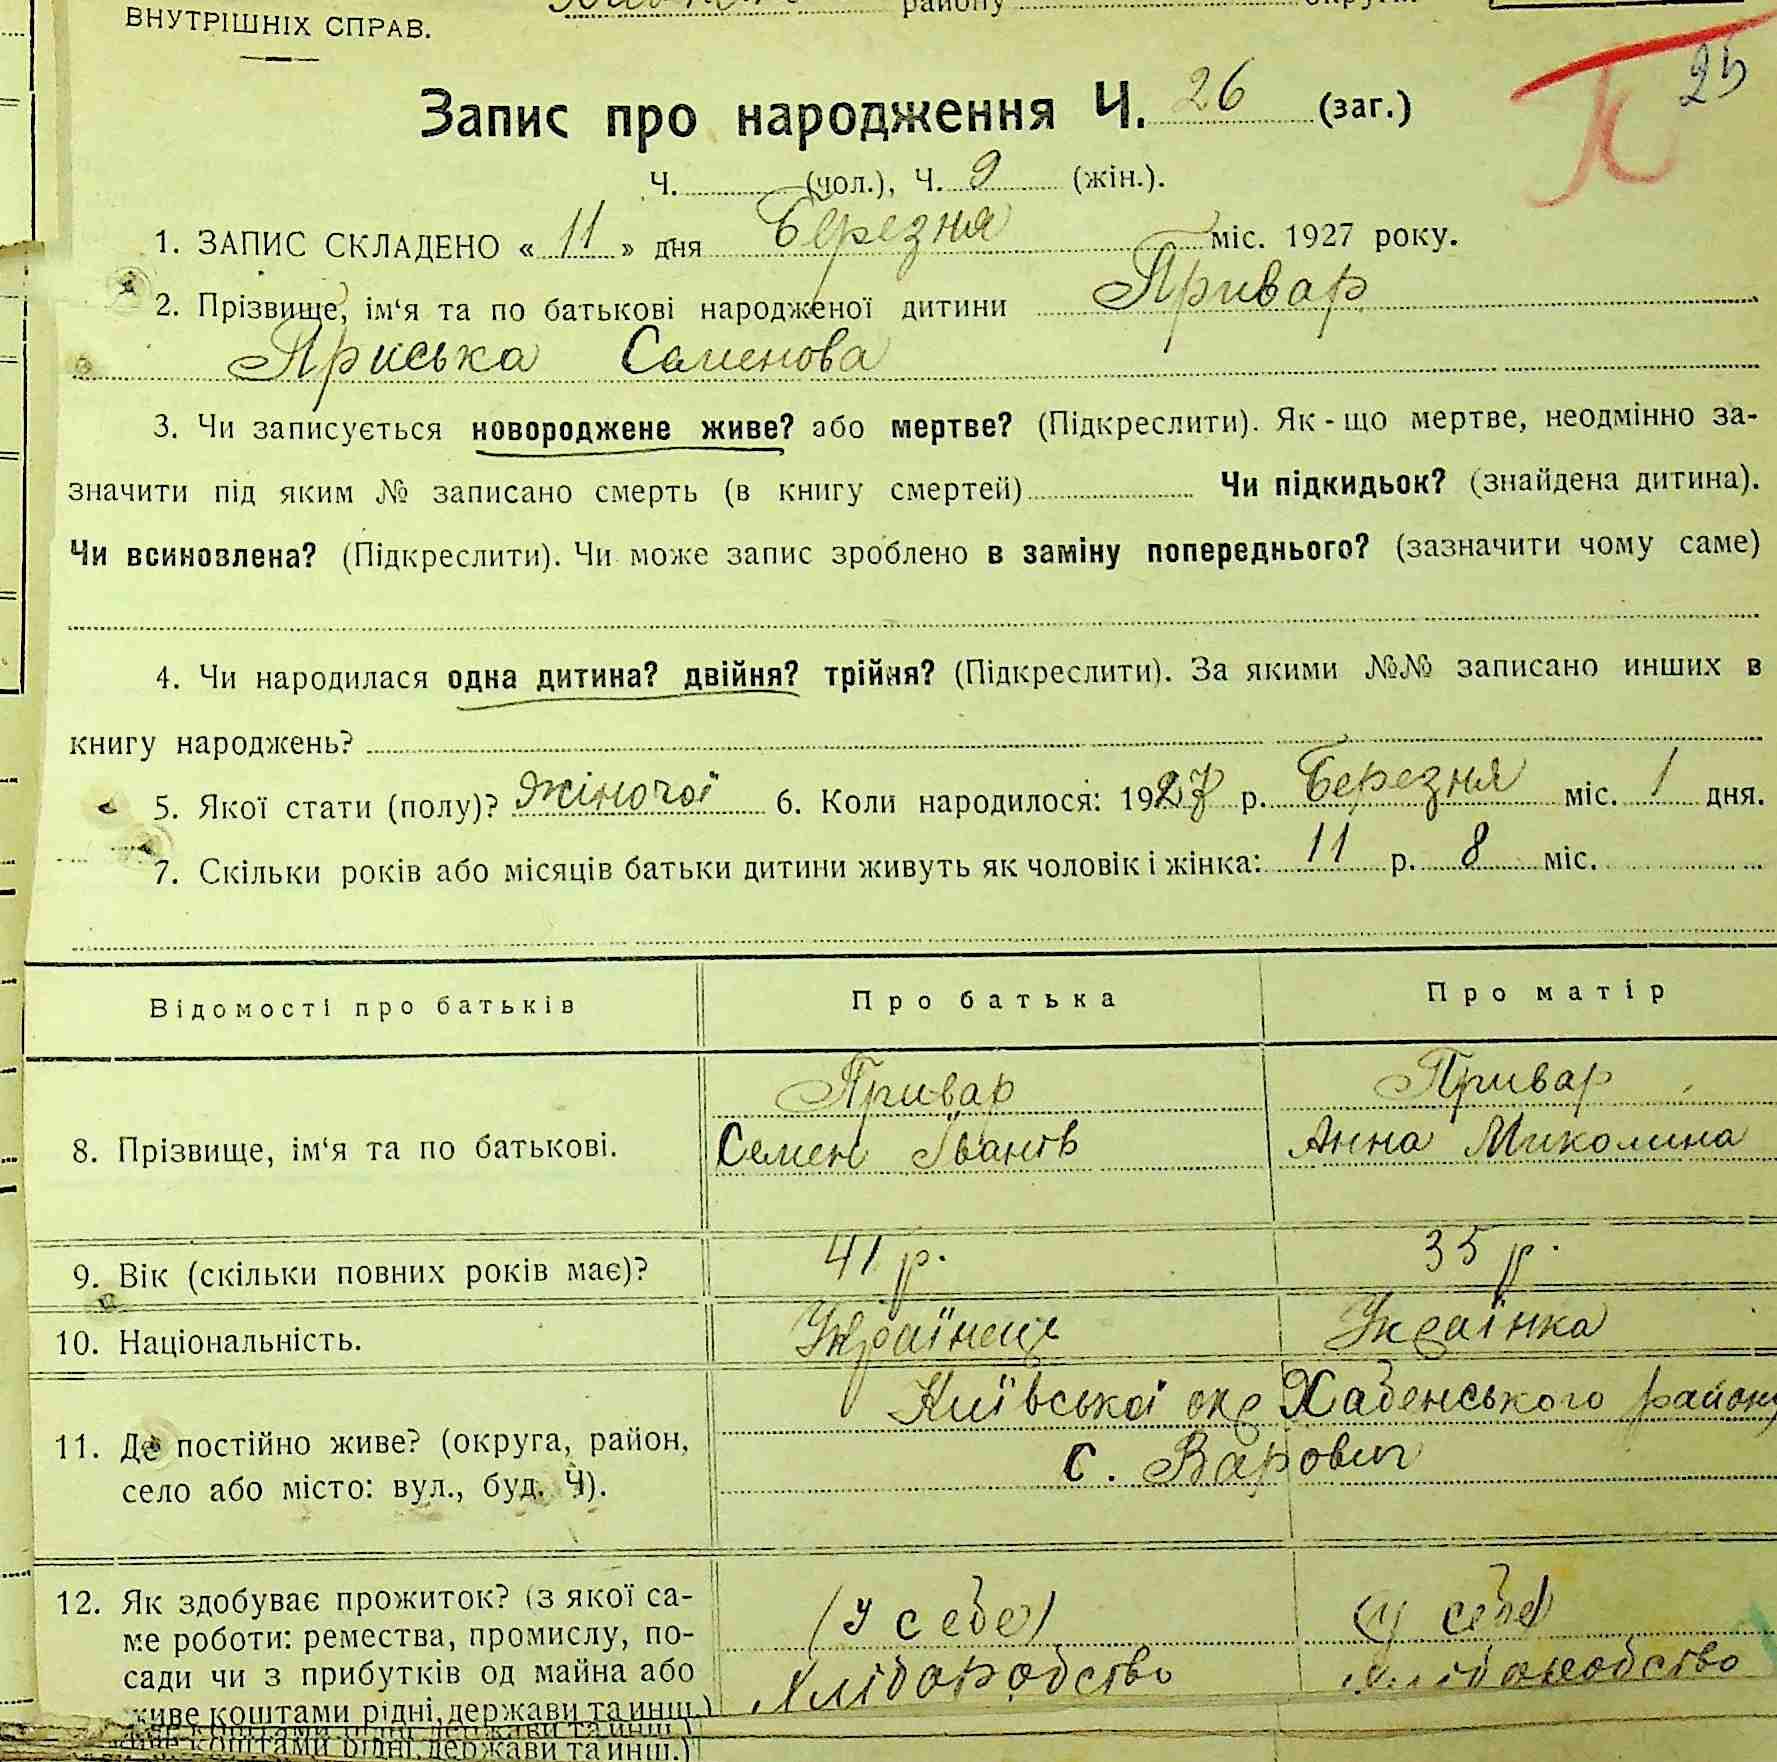 району
ВНУТРІШНІХ СПРАВ.
25
Запис про народження Ч. 26 (заг.)
Ч. (чол.), Ч. 9 (жін.).
1. ЗАПИС СКЛАДЕНО « 11 » дня Березня міс. 1927 року.
2. Прізвище, ім‘я та по батькові народженої дитини Привар
Яриська Семенова
3. Чи записується новороджене живе? або мертве? (Підкреслити). Як-що мертве, неодмінно за-
значити під яким № записано смерть (в книгу смертей) Чи підкидьок? (знайдена дитина).
Чи всиновлена? (Підкреслити). Чи може запис зроблено в заміну попереднього? (зазначити чому саме)
4. Чи народилася одна дитина? двійня? трійня? (Підкреслити). За якими №№ записано инших в
книгу народжень?
5. Якої стати (полу)? жіночої 6. Коли народилося: 1927 р. Березня міс. 1 дня.
7. Скільки років або місяців батьки дитини живуть як чоловік і жінка: 11 р. 8 міс.
Відомості про батьків Про батька Про матір
8. Прізвище, ім‘я та по батькові. Привар Привар
Семен Іванів Анна Миколина
9. Вік (скільки повних років має)? 41 р. 35 р.
10. Національність. Українець Українка
11. Де постійно живе? (округа, район, село або місто: вул., буд. Ч). Київської окр Хабенського району
с. Варовичі
12. Як здобуває прожиток? (з якої са- (у себе) (у себе)
ме роботи: ремества, промислу, по-
сади чи з прибутків од майна або Хліборобство Хліборобство
живе коштами рідні, держави та инш.)
коштами рідні, держави та инш.)